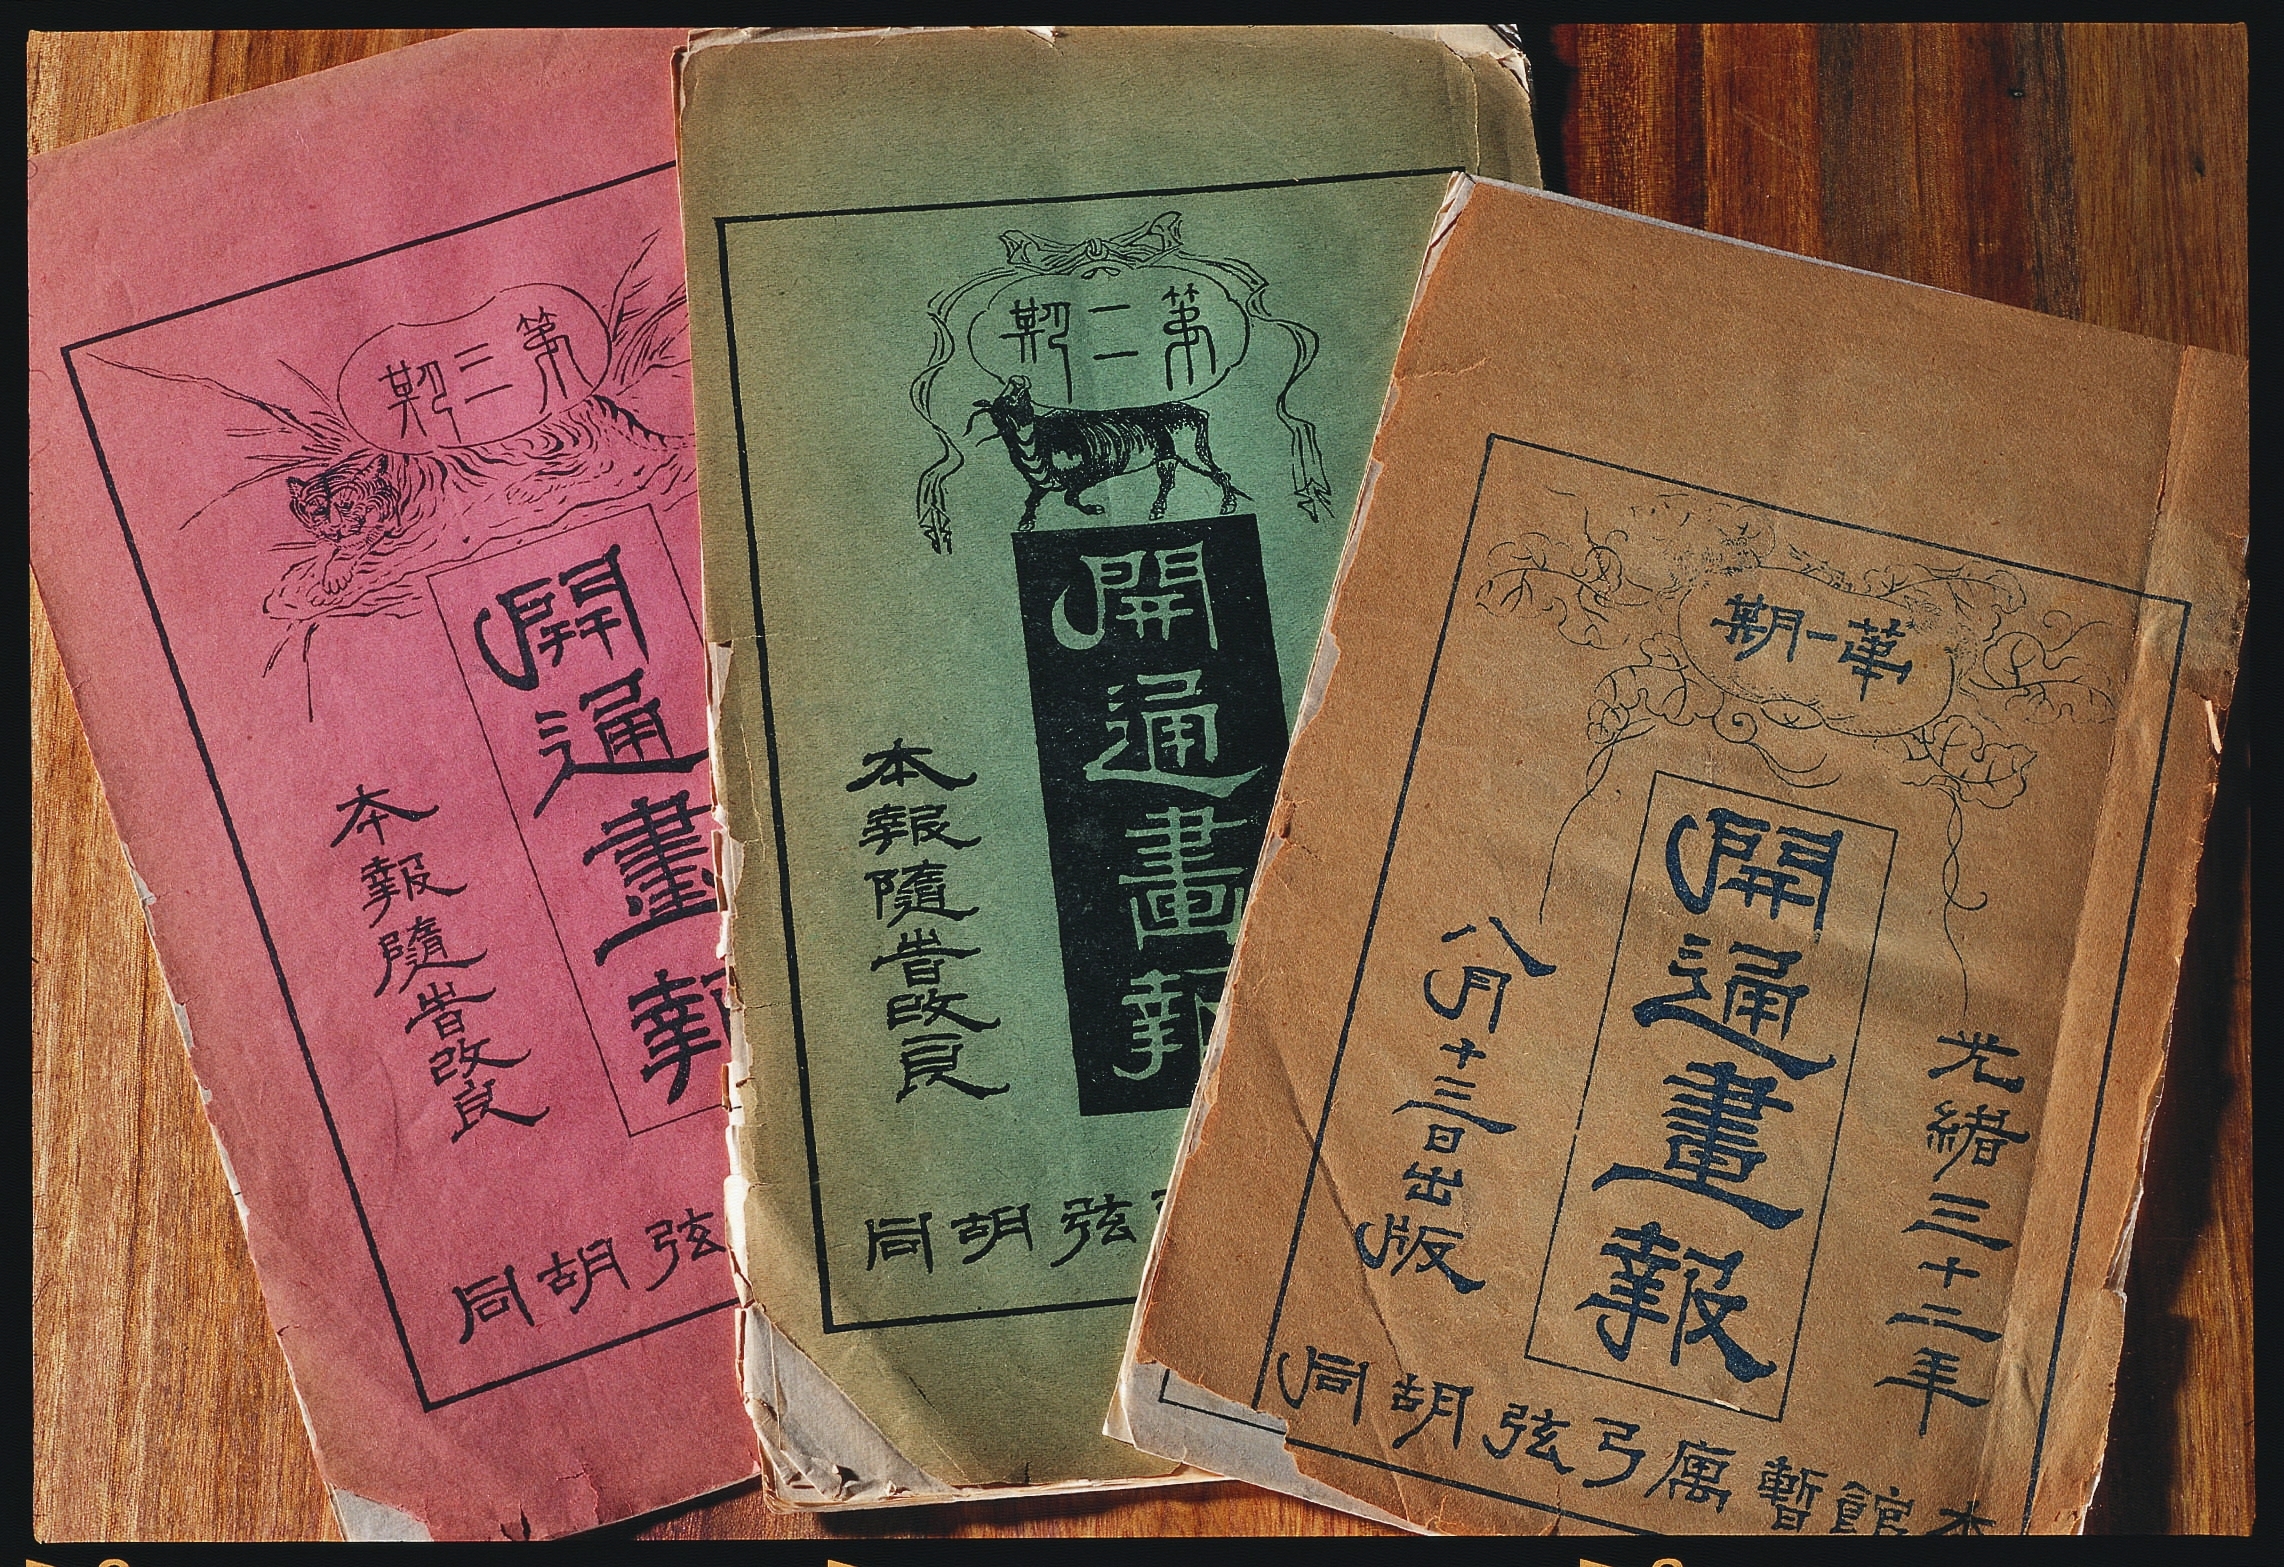 第三期
開通畫報
本報隨時改良
同胡弦
第二期
開通畫報
本報隨時改良
同胡弦
第一期
開通畫報
光緒三十二年
八月十三日出版
本館暫寓弓弦胡同